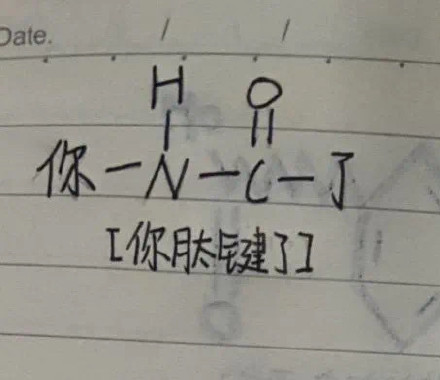 Date. / /
H O
你-N-C-了
[你肽键了]